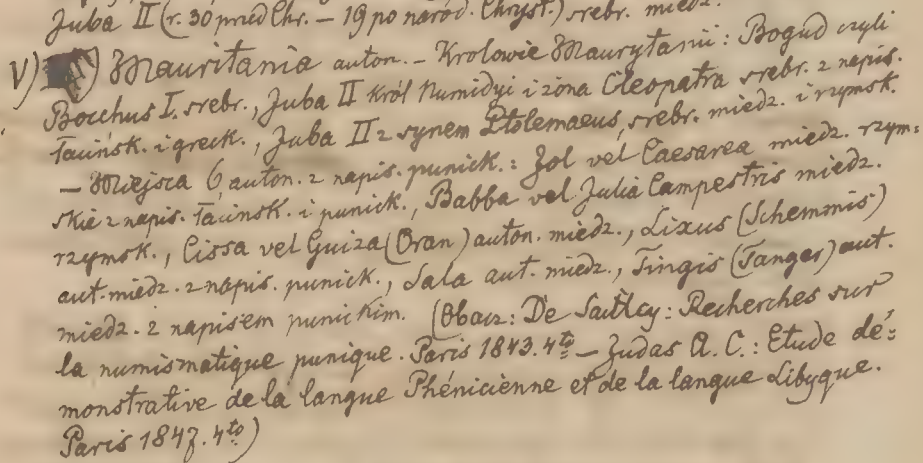 Juba II (r. 30 przed Chr. – 19 po narod. Chryst.) srebr. miedz.
V) Mauritania auton. – Krolowie Maurytanii: Bogud czyli
Bocchus I. srebr., Juba II król Numidyi i żona Cleopatra srebr. z napis.
łacińsk. i greck., Juba II z synem Ptolemaeus, srebr. miedz. i rzymsk.
– Miejsca 6, auton. z napis. punick.: Jol vel Caesarea miedz. rzym=
skie z napis. łacinsk. i punick., Babba vel Julia Campestris miedz.
rzymsk., Cissa vel Guiza (Oran) auton. miedz., Lixus (Schemmis)
aut. miedz. z napis. punick., Sala aut. miedz., Tingis (Tanger) aut.
miedz. z napisem punickim. (Obacz: De Saulcy: Recherches sur
la numismatique punique. Paris 1843. 4to – Judas A. C.: Etude dé=
monstrative de la langue Phénicienne et de la langue Libyque.
Paris 1847. 4to)